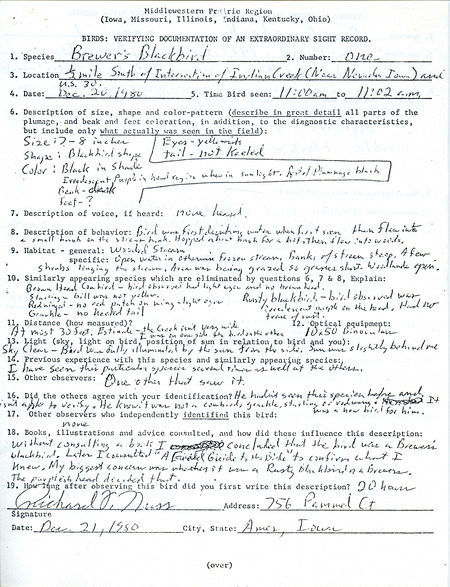 Middlewestern Prairie Region
(Iowa, Missouri, Illinois, Indiana, Kentucky, Ohio)
BIRDS: VERIFYING DOCUMENTATION OF AN EXTRAORDINARY SIGHT RECORD.
1. Species Brewer's Blackbird 2. Number: one
3. Location 1/2 mile South of Intersection of Indian Creek (Near Nevada Iowa) and
U.S. 30.
4. Date: Dec. 20, 1980 5. Time Bird seen: 11:00 am to 11:02 a.m.
6. Description of size, shape and color-pattern (describe in great detail all parts of
the plumage, and beak and feet coloration, in addition, to the diagnostic characteristics,
but include only what actually was seen in the field):
Size: 7-8 inches Eyes - yellowish
Shape: Blackbird shape tail - not keeled
Color: Black in Shade
Irredescent Purple in head region when in sunlight. Rest of Plummage black
Beak - dark
Feet - ?
7. Description of voice, if heard: none heard.
8. Description of behavior: Bird was first drinking water when first seen then flew into
a small bush on the stream bank. Hopped about bush for a bit then flew into woods.
9. Habitat - general: Wooded Stream
specific: Open water in otherwise frozen stream, banks of stream steep. A few
shrubs lining the stream. Area was being grazed so grasses short. Woodlands open.
10. Similarly appearing species which are eliminated by questions 6, 7 & 8, Explain:
Brown Head Cowbird - bird observed had light eyes and no brown head.
Starling - bill was not yellow. Rusty blackbird - bird observed was
Redwings - no red patch on wing - light eyes
Grackle - no keeled tail
11. Distance (how measured)? 12. Optical equipment:
At most 30 feet. Estimate - the Creek isn't very wide 10x50 binoculars
13. Light (sky, light on bird, position of sun in relation to bird and you):
Sky Clear - Bird was fully illuminated by the sun from the side. Sun was slightly behind me
14. Previous experience with this species and similarly appearing species:
I have seen this particular species several times as well as the others.
15. Other observers: One other that saw it.
16. Did the others agree with your identification? He hadn't seen this species before and
isn't able to verify. He knew it was not a cowbird, grackle, starling or redwing. It
was a new bird for him.
17. Other observers who independently identified this bird:
none
18. Books, illustrations and advice consulted, and how did these influence this description:
Without consulting a book I concluded that the bird was a Brewer's
blackbird. Later I consulted "A Field Guide to the Birds" to confirm what I
knew. My biggest concern was whether it was a Rusty blackbird or a Brewers.
The purplish head decided that.
19. How long after observing this bird did you first write this description? 20 hours
Richard J. Nuss Address: 756 Pammel Ct
Signature
Date: Dec 21, 1980 City, State: Ames, Iowa
(over)